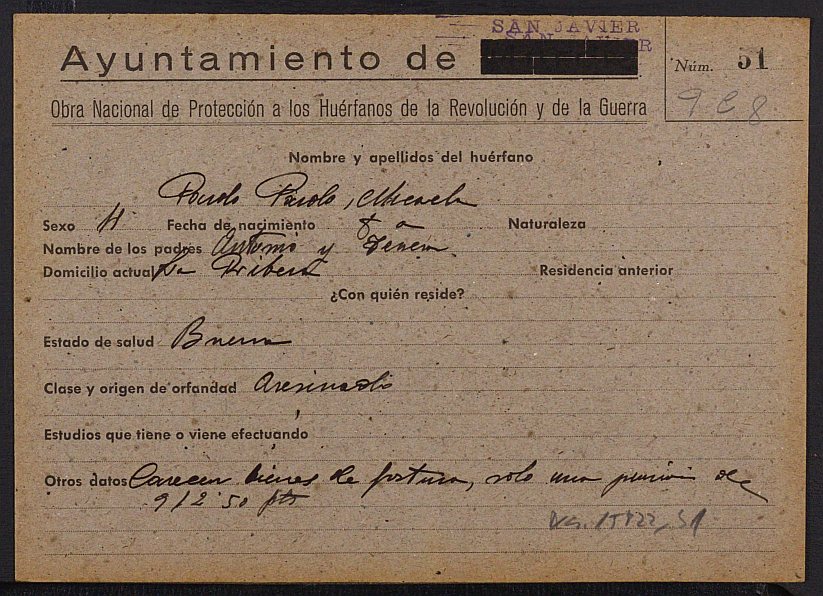 SAN JAVIER
Ayuntamiento de
Núm. 51
Obra Nacional de Protección a los Huérfanos de la Revolución y de la Guerra
Nombre y apellidos del huérfano
Pardo Pardo, Micaela
Sexo H Fecha de nacimiento 8 a Naturaleza
Nombre de los padres Antonio y
Domicilio actual La Ribera Residencia anterior
¿Con quién reside?
Estado de salud Buena
Clase y origen de orfandad Asesinado
Estudios que tiene o viene efectuando
Otros datos Carecen bienes de fortuna, solo una pensión de
912'50 pts